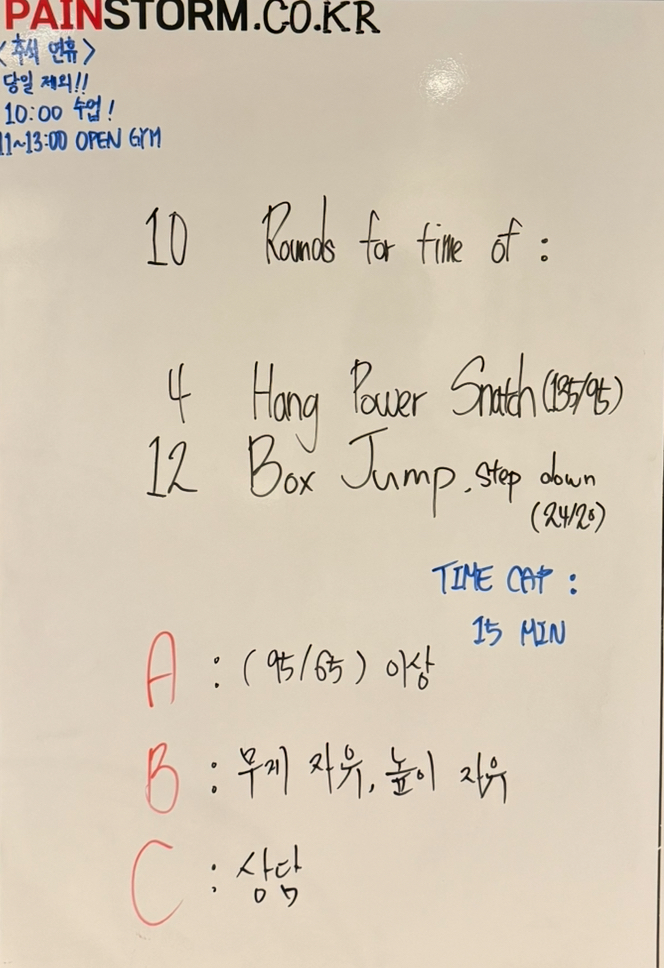 PAINSTORM.CO.KR
<추석 연휴>
당일 제외!!
10:00 수업!
11~13:00 OPEN GYM
10 Rounds for time of :
4 Hang Power Snatch (135/95)
12 Box Jump, step down
(24/20)
TIME CAP :
15 MIN
A : (95/65) 이상
B : 무게 자유, 높이 자유
C : 상담